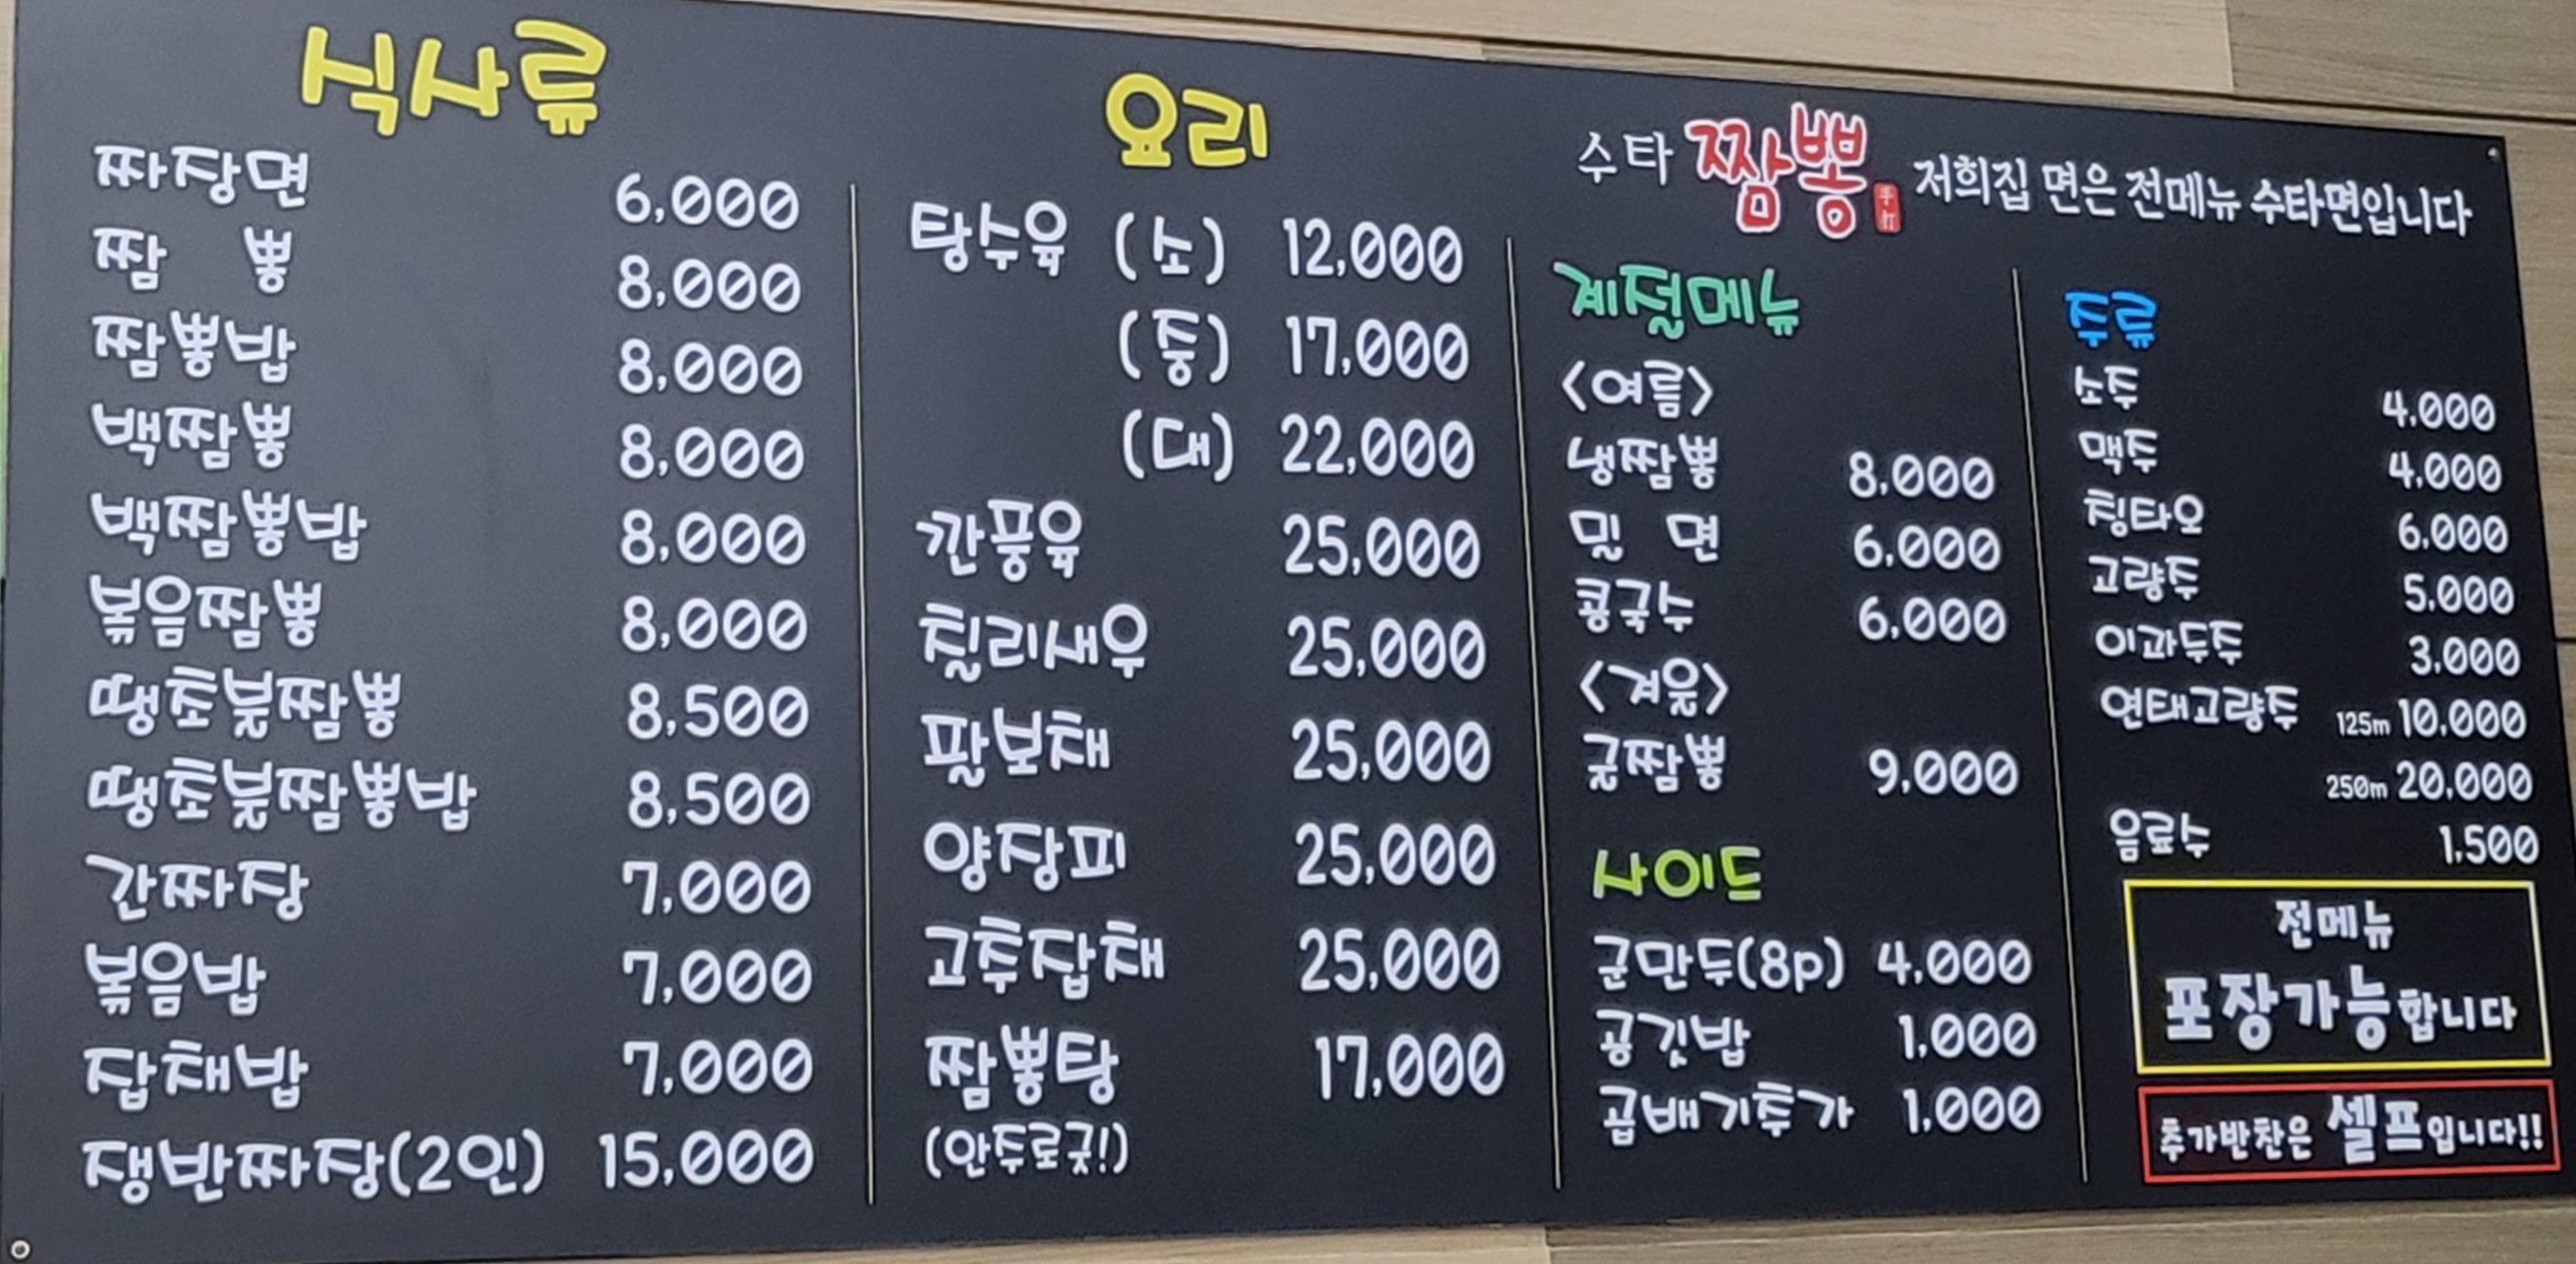 식사류
짜장면 6,000
짬 뽕 8,000
짬뽕밥 8,000
백짬뽕 8,000
백짬뽕밥 8,000
볶음짬뽕 8,000
땡초불짬뽕 8,500
땡초불짬뽕밥 8,500
간짜장 7,000
볶음밥 7,000
잡채밥 7,000
쟁반짜장(2인) 15,000
요리
탕수육 (소) 12,000
(중) 17,000
(대) 22,000
깐풍육 25,000
칠리새우 25,000
팔보채 25,000
양장피 25,000
고추잡채 25,000
짬뽕탕 17,000
(안주로굿!)
수타 짬뽕 手打 저희집 면은 전메뉴 수타면입니다
계절메뉴
<여름>
냉짬뽕 8,000
밀 면 6,000
콩국수 6,000
<겨울>
굴짬뽕 9,000
사이드
군만두(8p) 4,000
공깃밥 1,000
곱배기추가 1,000
주류
소주 4,000
맥주 4,000
칭타오 6,000
고량주 5,000
이과두주 3,000
연태고량주 125m 10,000
250m 20,000
음료수 1,500
전메뉴
포장가능합니다
추가반찬은 셀프입니다!!